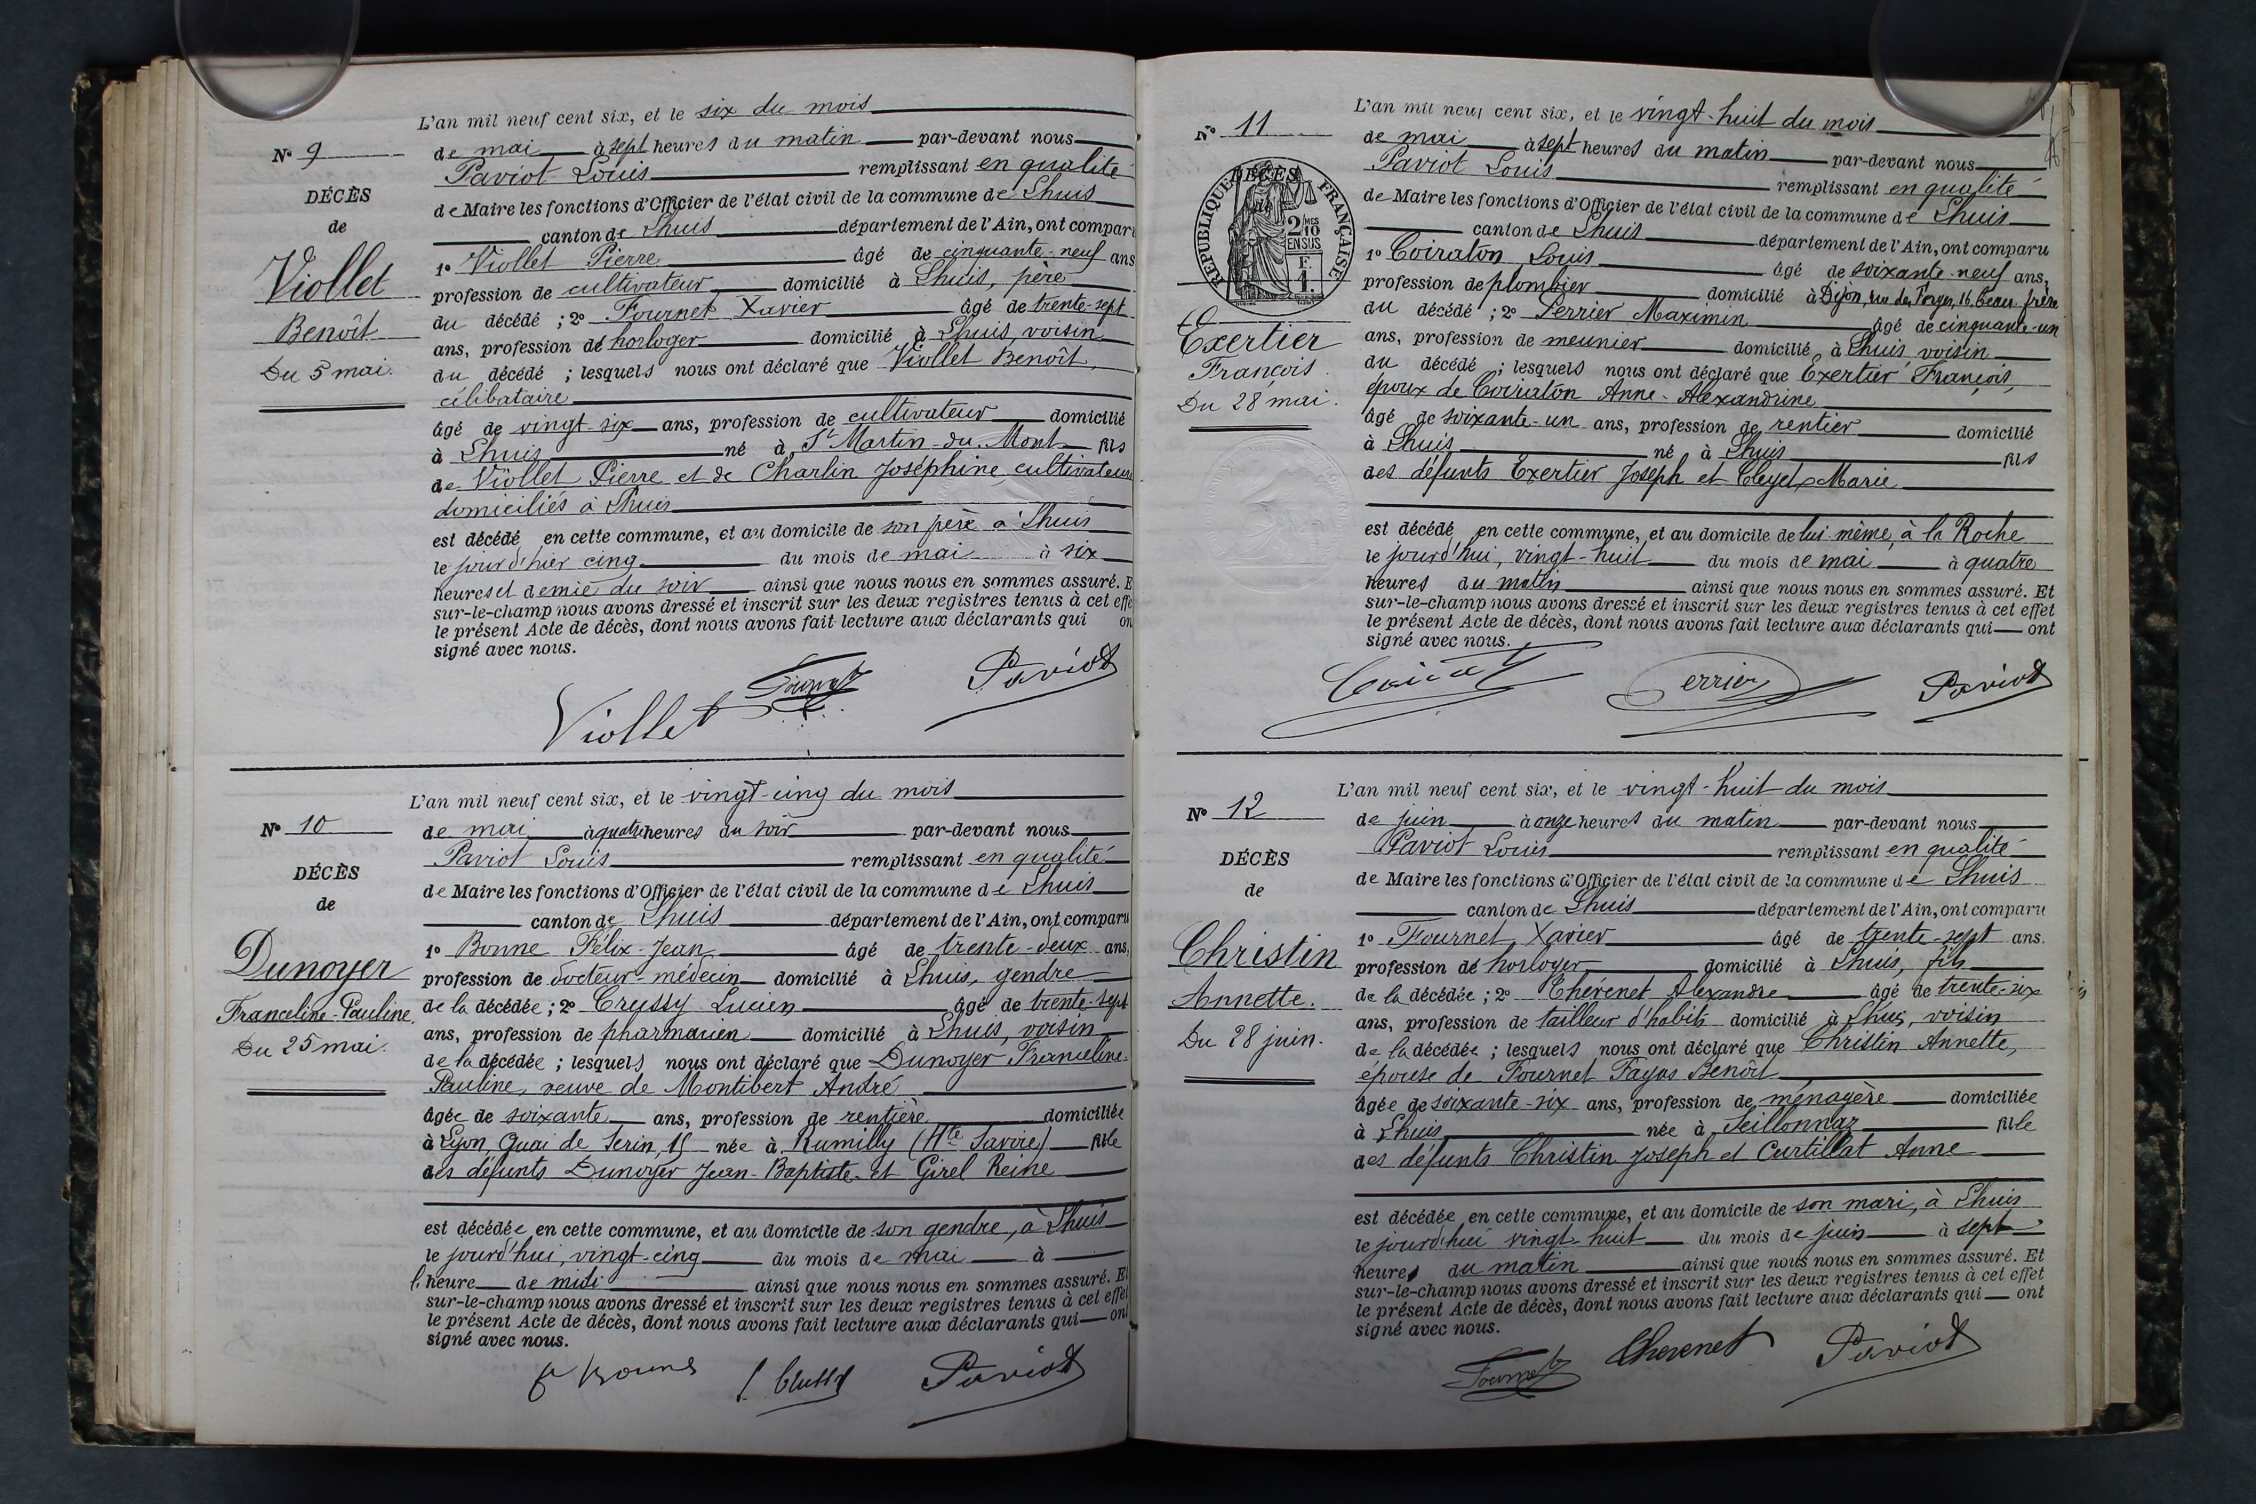 L'an mil neuf cent six, et le six du mois
Nº 9
de mai à sept heures du matin par-devant nous
Paviot Louis remplissant en qualité
DÉCÈS
de Maire les fonctions d'Officier de l'état civil de la commune de Lhuis
de
canton de Lhuis département de l'Ain, ont compar
Viollet
1º Viollet Pierre âgé de cinquante-neuf ans
profession de cultivateur domicilié à Lhuis, père
Benoît
du décédé ; 2º Fournet Xavier âgé de trente-sept
ans, profession de horloger domicilié à Lhuis, voisin
Du 5 mai.
du décédé ; lesquels nous ont déclaré que Viollet Benoît,
célibataire
âgé de vingt-six ans, profession de cultivateur domicilié
à Lhuis né à St Martin-du-Mont fils
de Viollet Pierre et de Charlin Joséphine, cultivateurs
domiciliés à Lhuis
est décédé en cette commune, et au domicile de son père à Lhuis
le jour d'hier cinq du mois de mai à six
heures et demie du soir ainsi que nous nous en sommes assuré. E
sur-le-champ nous avons dressé et inscrit sur les deux registres tenus à cet effe
le présent Acte de décès, dont nous avons fait lecture aux déclarants qui on
signé avec nous.
Viollet Fournet Paviot
L'an mil neuf cent six, et le vingt-cinq du mois
Nº 10
de mai à quatre heures du soir par-devant nous
Paviot Louis remplissant en qualité
DÉCÈS
de Maire les fonctions d'Officier de l'état civil de la commune de Lhuis
de
canton de Lhuis département de l'Ain, ont comparu
Dunoyer
1º Bonne Félix-Jean âgé de trente-deux ans,
profession de docteur-médecin domicilié à Lhuis, gendre
Franceline-Pauline.
de la décédée ; 2º Crussy Lucien âgé de trente-sept
ans, profession de pharmacien domicilié à Lhuis, voisin
Du 25 mai.
de la décédée ; lesquels nous ont déclaré que Dunoyer Franceline-
Pauline, veuve de Montibert André
âgée de soixante ans, profession de rentière domiciliée
à Lyon, Quai de Serin, 15 née à Rumilly (Hte Savoie) fille
des défunts Dunoyer Jean-Baptiste et Girel Reine
est décédée en cette commune, et au domicile de son gendre, à Lhuis
le jourd'hui, vingt-cinq du mois de mai à
l'heure de midi ainsi que nous nous en sommes assuré. Et
sur-le-champ nous avons dressé et inscrit sur les deux registres tenus à cet effet
le présent Acte de décès, dont nous avons fait lecture aux déclarants qui ont
signé avec nous.
F Bonne L. Crussy Paviot
L'an mil neuf cent six, et le vingt-huit du mois
Nº 11
de mai à sept heures du matin par-devant nous
Paviot Louis remplissant en qualité
DÉCÈS
RÉPUBLIQUE FRANÇAISE
2/10 MES
EN SUS
F.
1.
de Maire les fonctions d'Officier de l'état civil de la commune de Lhuis
canton de Lhuis département de l'Ain, ont comparu
1º Coiraton Louis âgé de soixante-neuf ans,
profession de plombier domicilié à Dijon, rue des Forges, 16, beau-frère
du décédé ; 2º Perrier Maximin âgé de cinquante-un
Exertier
ans, profession de meunier domicilié à Lhuis voisin
François.
du décédé ; lesquels nous ont déclaré que Exertier François,
époux de Coiraton Anne-Alexandrine
Du 28 mai.
âgé de soixante-un ans, profession de rentier domicilié
à Lhuis né à Lhuis fils
des défunts Exertier Joseph et Cleyet-Marie
est décédé en cette commune, et au domicile de lui-même, à la Roche
le jourd'hui, vingt-huit du mois de mai à quatre
heures du matin ainsi que nous nous en sommes assuré. Et
sur-le-champ nous avons dressé et inscrit sur les deux registres tenus à cet effet
le présent Acte de décès, dont nous avons fait lecture aux déclarants qui ont
signé avec nous.
Perrier Paviot
L'an mil neuf cent six, et le vingt-huit du mois
Nº 12
de juin à onze heures du matin par-devant nous
Paviot Louis remplissant en qualité
DÉCÈS
de Maire les fonctions d'Officier de l'état civil de la commune de Lhuis
de
canton de Lhuis département de l'Ain, ont comparu
Christin
1º Fournet Xavier âgé de trente-sept ans.
profession de horloger domicilié à Lhuis, fils
Annette.
de la décédée ; 2º Chérenet Alexandre âgé de trente-six
ans, profession de tailleur d'habits domicilié à Lhuis, voisin
Du 28 juin.
de la décédée ; lesquels nous ont déclaré que Christin Annette,
épouse de Fournet Fayas Benoît
âgée de soixante-six ans, profession de ménagère domiciliée
à Lhuis née à Seillonnaz fille
des défunts Christin Joseph et Curtillat Anne
est décédée en cette commune, et au domicile de son mari, à Lhuis
le jourd'hui vingt-huit du mois de juin à sept
heures du matin ainsi que nous nous en sommes assuré. Et
sur-le-champ nous avons dressé et inscrit sur les deux registres tenus à cet effet
le présent Acte de décès, dont nous avons fait lecture aux déclarants qui ont
signé avec nous.
Fournet Cherenet Paviot